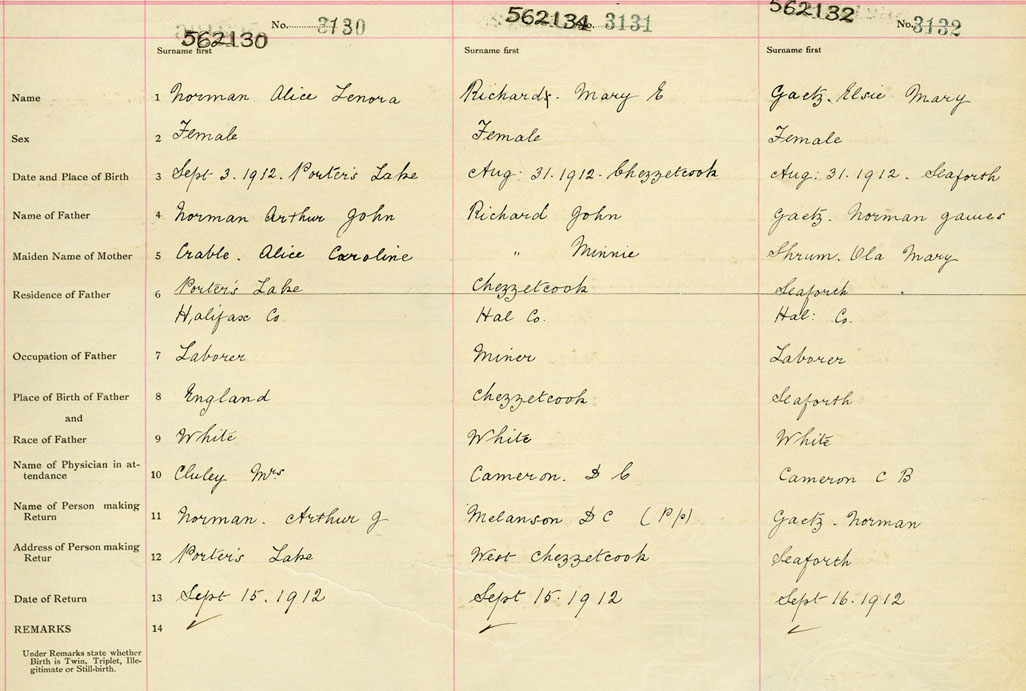 562130 No. 3130 562134 No. 3131 562132 No. 3132
Surname first Surname first Surname first
Name 1 Norman Alice Lenora Richard. Mary E Gaetz. Elsie Mary
Sex 2 Female Female Female
Date and Place of Birth 3 Sept 3. 1912. Porter's Lake Aug: 31. 1912. Chezzetcook Aug: 31. 1912. Seaforth
Name of Father 4 Norman Arthur John Richard John Gaetz. Norman James
Maiden Name of Mother 5 Crable. Alice Caroline " Minnie Shrum. Ola Mary
Residence of Father 6 Porter's Lake Chezzetcook Seaforth
Halifax Co Hal Co. Hal: Co.
Occupation of Father 7 Laborer Miner Laborer
Place of Birth of Father 8 England Chezzetcook Seaforth
and
Race of Father 9 White White White
Name of Physician in at-
tendance 10 Cluley Mrs Cameron. D C Cameron C B
Name of Person making
Return 11 Norman. Arthur J Melanson D C (P/p) Gaetz. Norman
Address of Person making
Retur 12 Porter's Lake West Chezzetcook Seaforth
Date of Return 13 Sept 15. 1912 Sept 15. 1912 Sept 16. 1912
REMARKS 14
Under Remarks state whether
Birth is Twin, Triplet, Ille-
gitimate or Still-birth.